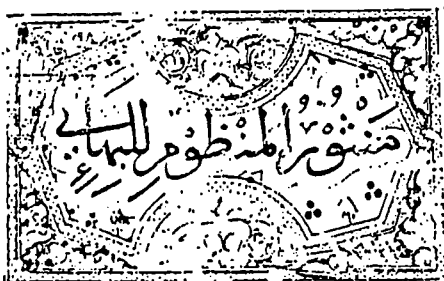 مَنْثُورُ المنظُومِ للبهائي